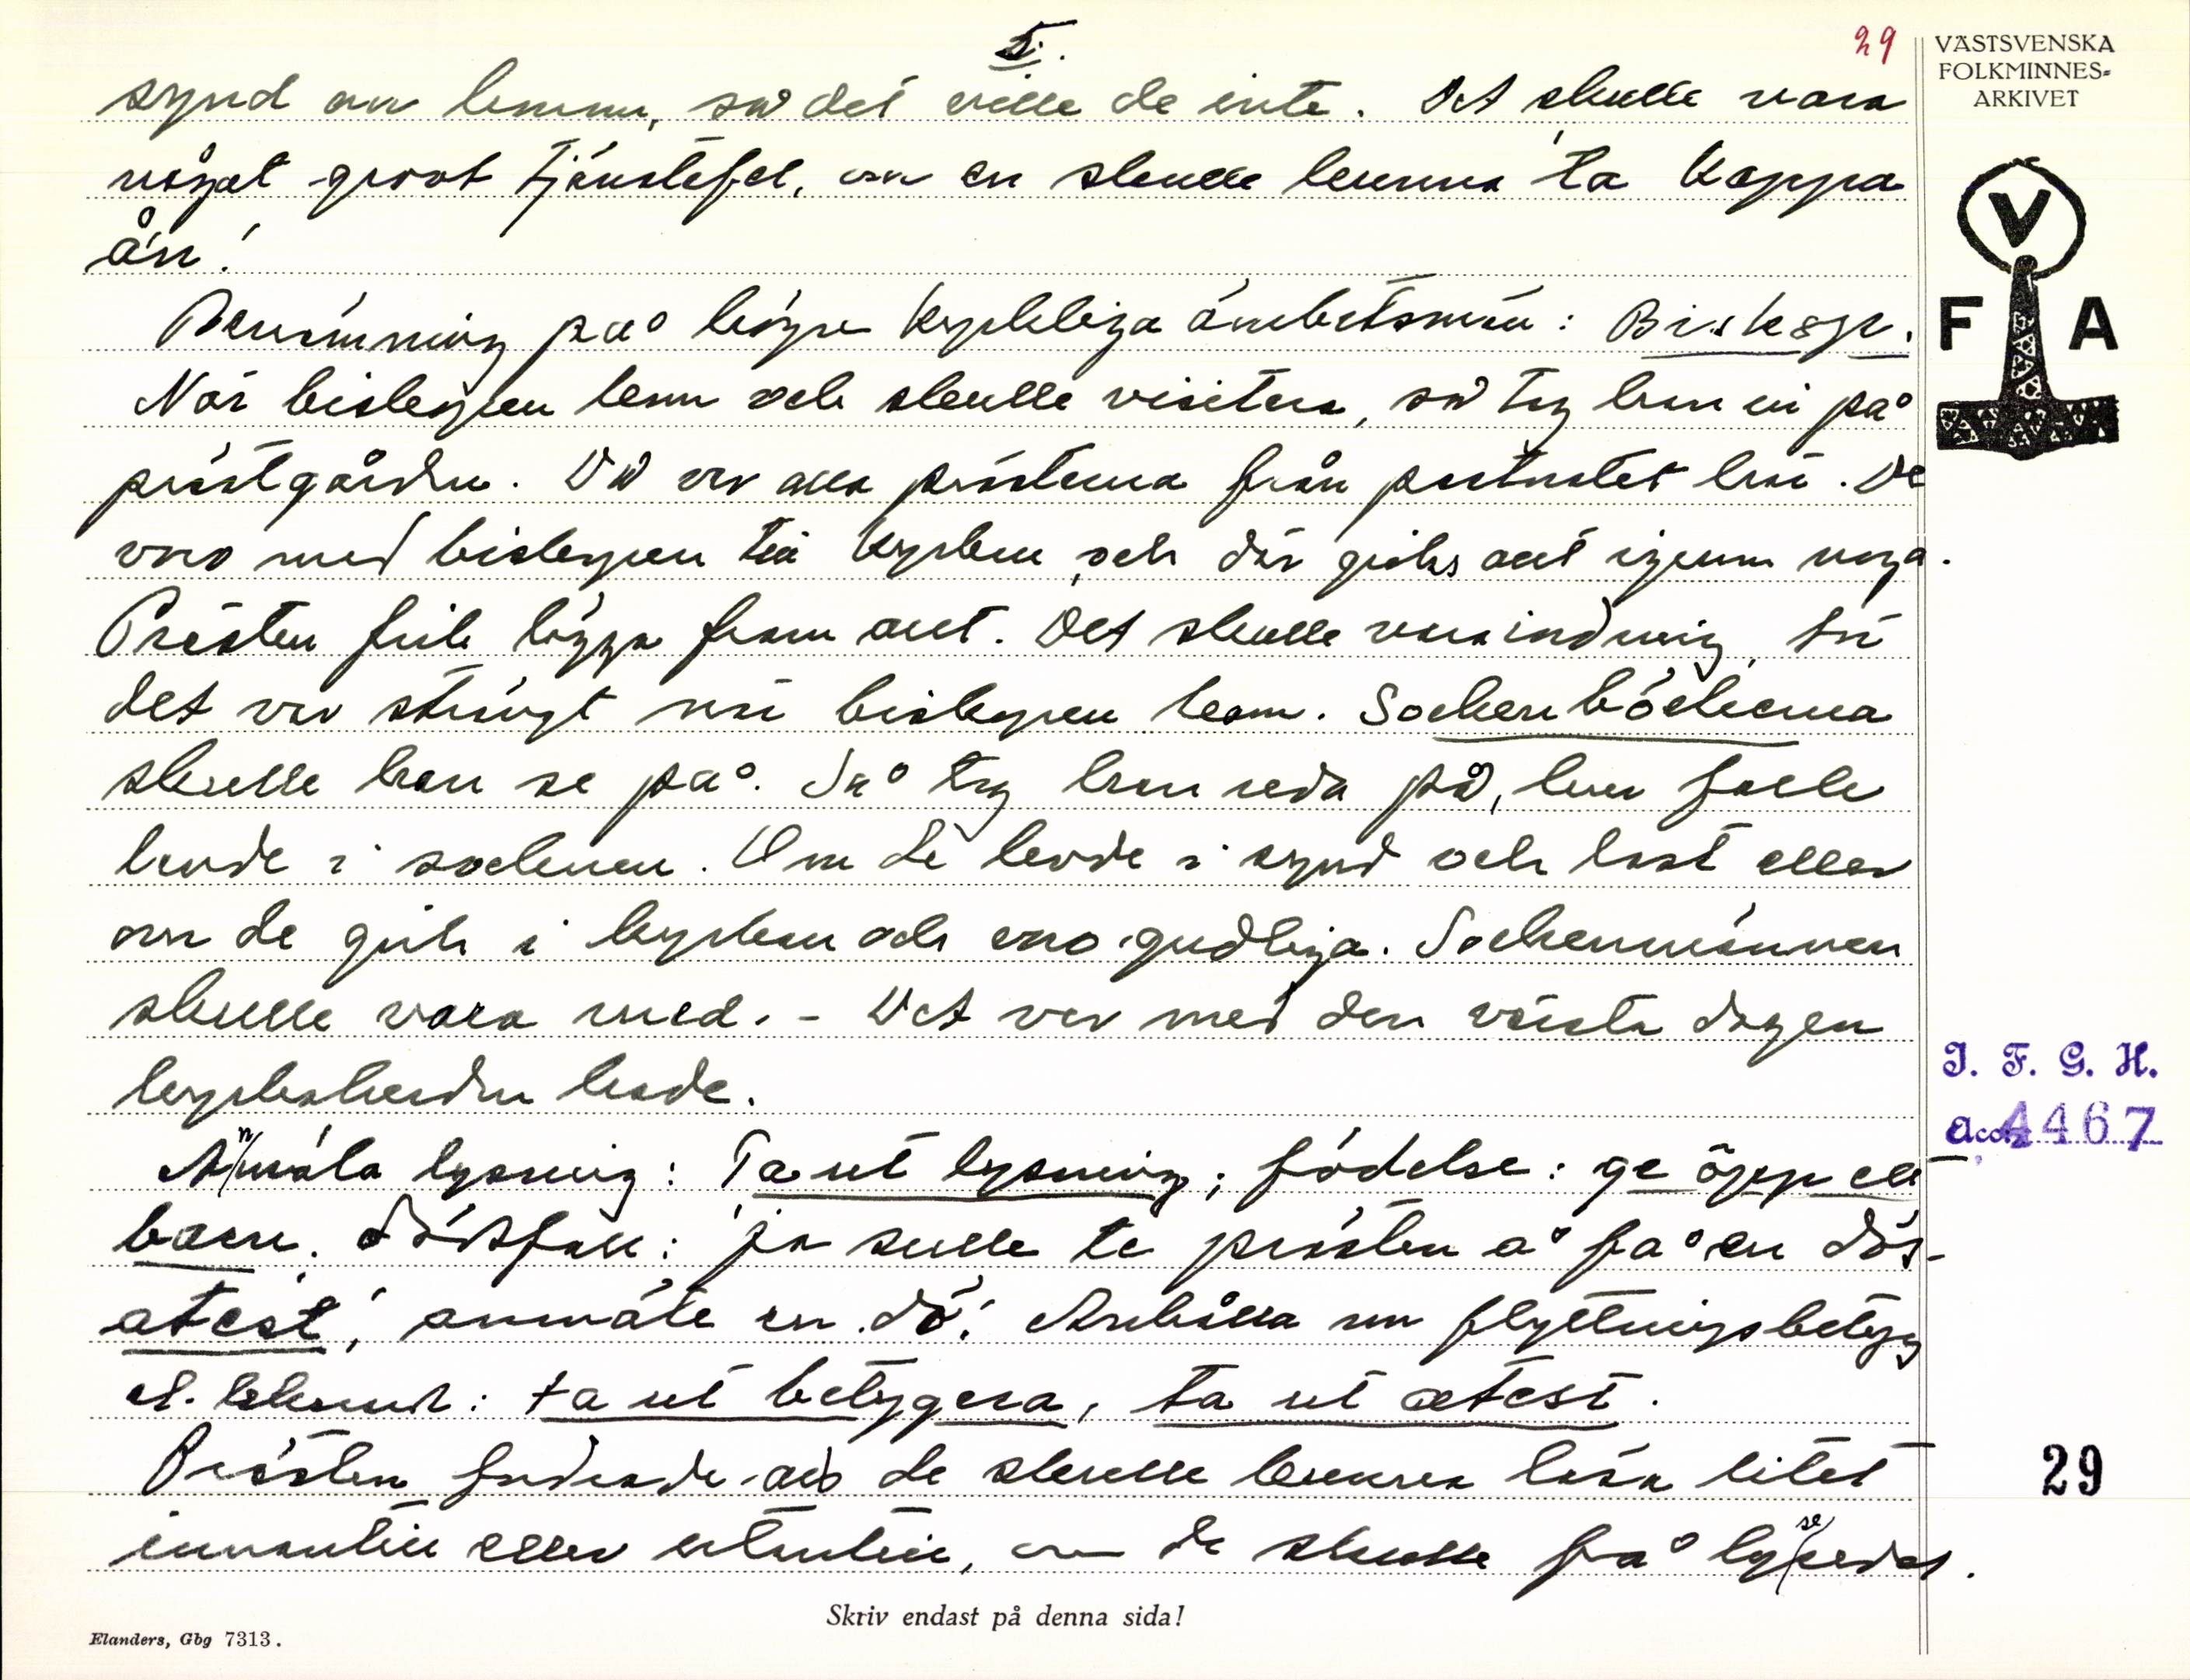 5.
29
VÄSTSVENSKA
FOLKMINNES-
ARKIVET
synd om honom, så det ville de inte. Det skulle vara
något grovt tjänstefel, om en skulle kunna ta kappa
å'n!
V
F A
Benämning på högre kyrkliga ämbetsmän: Biskop.
När biskopen kom och skulle visitera, så tog han in på
prästgården. Då var alla prästerna från pastoratet här. De
voro med biskopen till kyrkan, och där gicks allt igenom noga.
Prästen fick lägga fram allt. Det skulle vara ordning, för
det var strängt när biskopen kom. Sockenböckerna
skulle han se på. Så tog han reda på, hur folk
levde i socknen. Om de levde i synd och last eller
om de gick i kyrkan och voro gudliga. Sockenmännen
skulle vara med. - Det var med den värsta dagen
kyrkoherden hade.
I. F. G. H.
acc. 4467
Anmäla lysning: Ta ut lysning; födelse: ge opp ett
barn. Dödsfall: ja sulle te prästen å få en dös-
atest, anmäle en dö! Anhålla om flyttningsbetyg
el. liknande: ta ut betygera, ta ut atest.
Prästen fordrade att de skulle kunna läsa litet
innantill eller utantill, om de skulle få lysedel.
29
Skriv endast på denna sida!
Elanders, Gbg 7313.